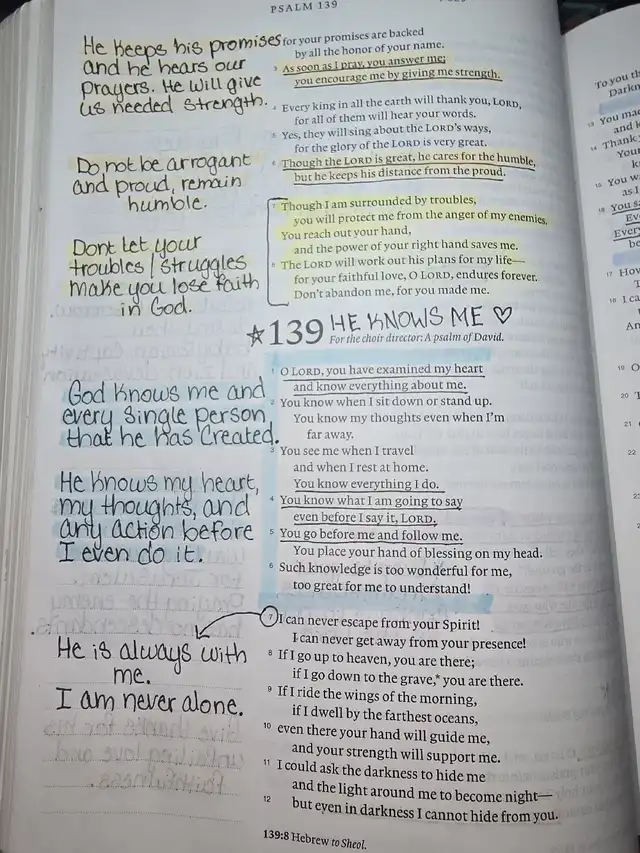 PSALM 139
He keeps his promises
and he hears our
prayers. He will give
us needed strength.
Do not be arrogant
and proud, remain
humble.
Dont let your
troubles/struggles
make you lose faith
in God.
for your promises are backed
by all the honor of your name.
3 As soon as I pray, you answer me;
you encourage me by giving me strength.
4 Every king in all the earth will thank you, LORD,
for all of them will hear your words.
5 Yes, they will sing about the LORD's ways,
for the glory of the LORD is very great.
6 Though the LORD is great, he cares for the humble,
but he keeps his distance from the proud.
7 Though I am surrounded by troubles,
you will protect me from the anger of my enemies.
You reach out your hand,
and the power of your right hand saves me.
8 The LORD will work out his plans for my life—
for your faithful love, O LORD, endures forever.
Don't abandon me, for you made me.
139 HE KNOWS ME
For the choir director: A psalm of David.
God knows me and
every single person
that he has created.
He knows my heart,
my thoughts, and
any action before
I even do it.
1 O LORD, you have examined my heart
and know everything about me.
2 You know when I sit down or stand up.
You know my thoughts even when I'm
far away.
3 You see me when I travel
and when I rest at home.
You know everything I do.
4 You know what I am going to say
even before I say it, LORD.
5 You go before me and follow me.
You place your hand of blessing on my head.
6 Such knowledge is too wonderful for me,
too great for me to understand!
He is always with
me.
I am never alone.
7 I can never escape from your Spirit!
I can never get away from your presence!
8 If I go up to heaven, you are there;
if I go down to the grave,* you are there.
9 If I ride the wings of the morning,
if I dwell by the farthest oceans,
10 even there your hand will guide me,
and your strength will support me.
11 I could ask the darkness to hide me
and the light around me to become night—
12 but even in darkness I cannot hide from you.
139:8 Hebrew to Sheol.
To you th
Darkn
13 You mad
and k
14 Thank y
Your
15 You w
as I
16 You sa
Every
be
17 How
18 I ca
An
19 O
20
21
22